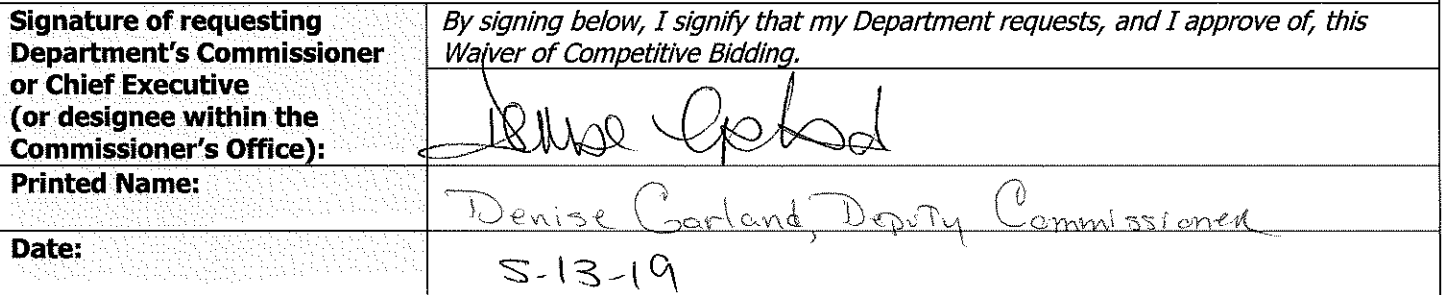 Signature of requesting
Department's Commissioner
or Chief Executive
(or designee within the
Commissioner's Office):
By signing below, I signify that my Department requests, and I approve of, this
Waiver of Competitive Bidding.
Denise Garland
Printed Name:
Denise Garland, Deputy Commissioner
Date:
5-13-19